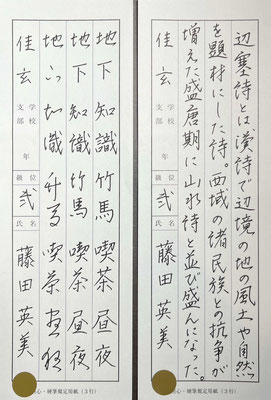 辺塞詩とは、漢詩で辺境の地の風土や自然
を題材にした詩。西域の諸民族との抗争が
増えた盛唐期に山水詩と並び盛んになった。
佳玄 支部 学校 年 級位 弐 氏名 藤田英美
硬筆規定用紙（3行）
地下知識竹馬喫茶昼夜
地下知識竹馬喫茶昼夜
地下知識竹馬喫茶昼夜
佳玄 支部 学校 年 級位 弐 氏名 藤田英美
心・硬筆規定用紙（3行）